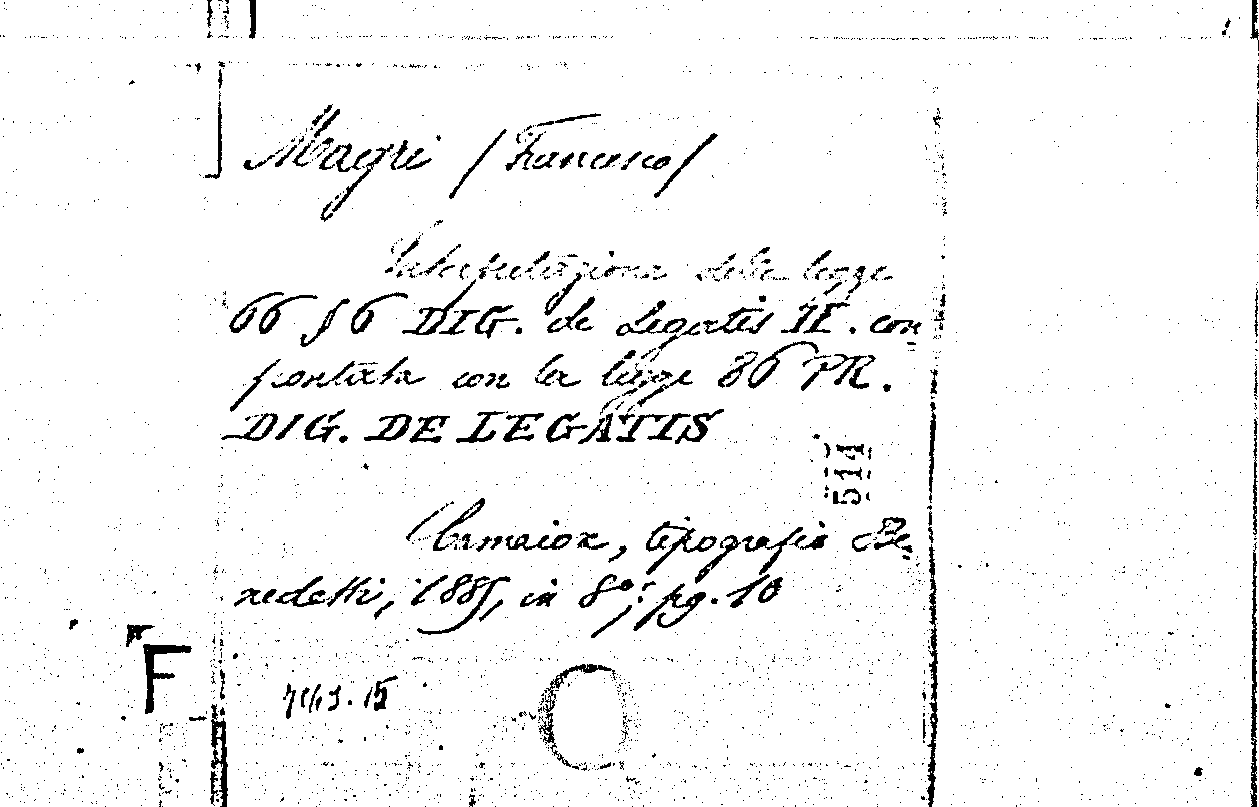 Magri /Francesco/
Interpretazione della legge
66 § 6 DIG. de Legatis II. con
frontata con la legge 86 PR.
DIG. DE LEGATIS
514
Camaiore, tipografia Be
nedetti, 1885, in 8°; pg. 10
F